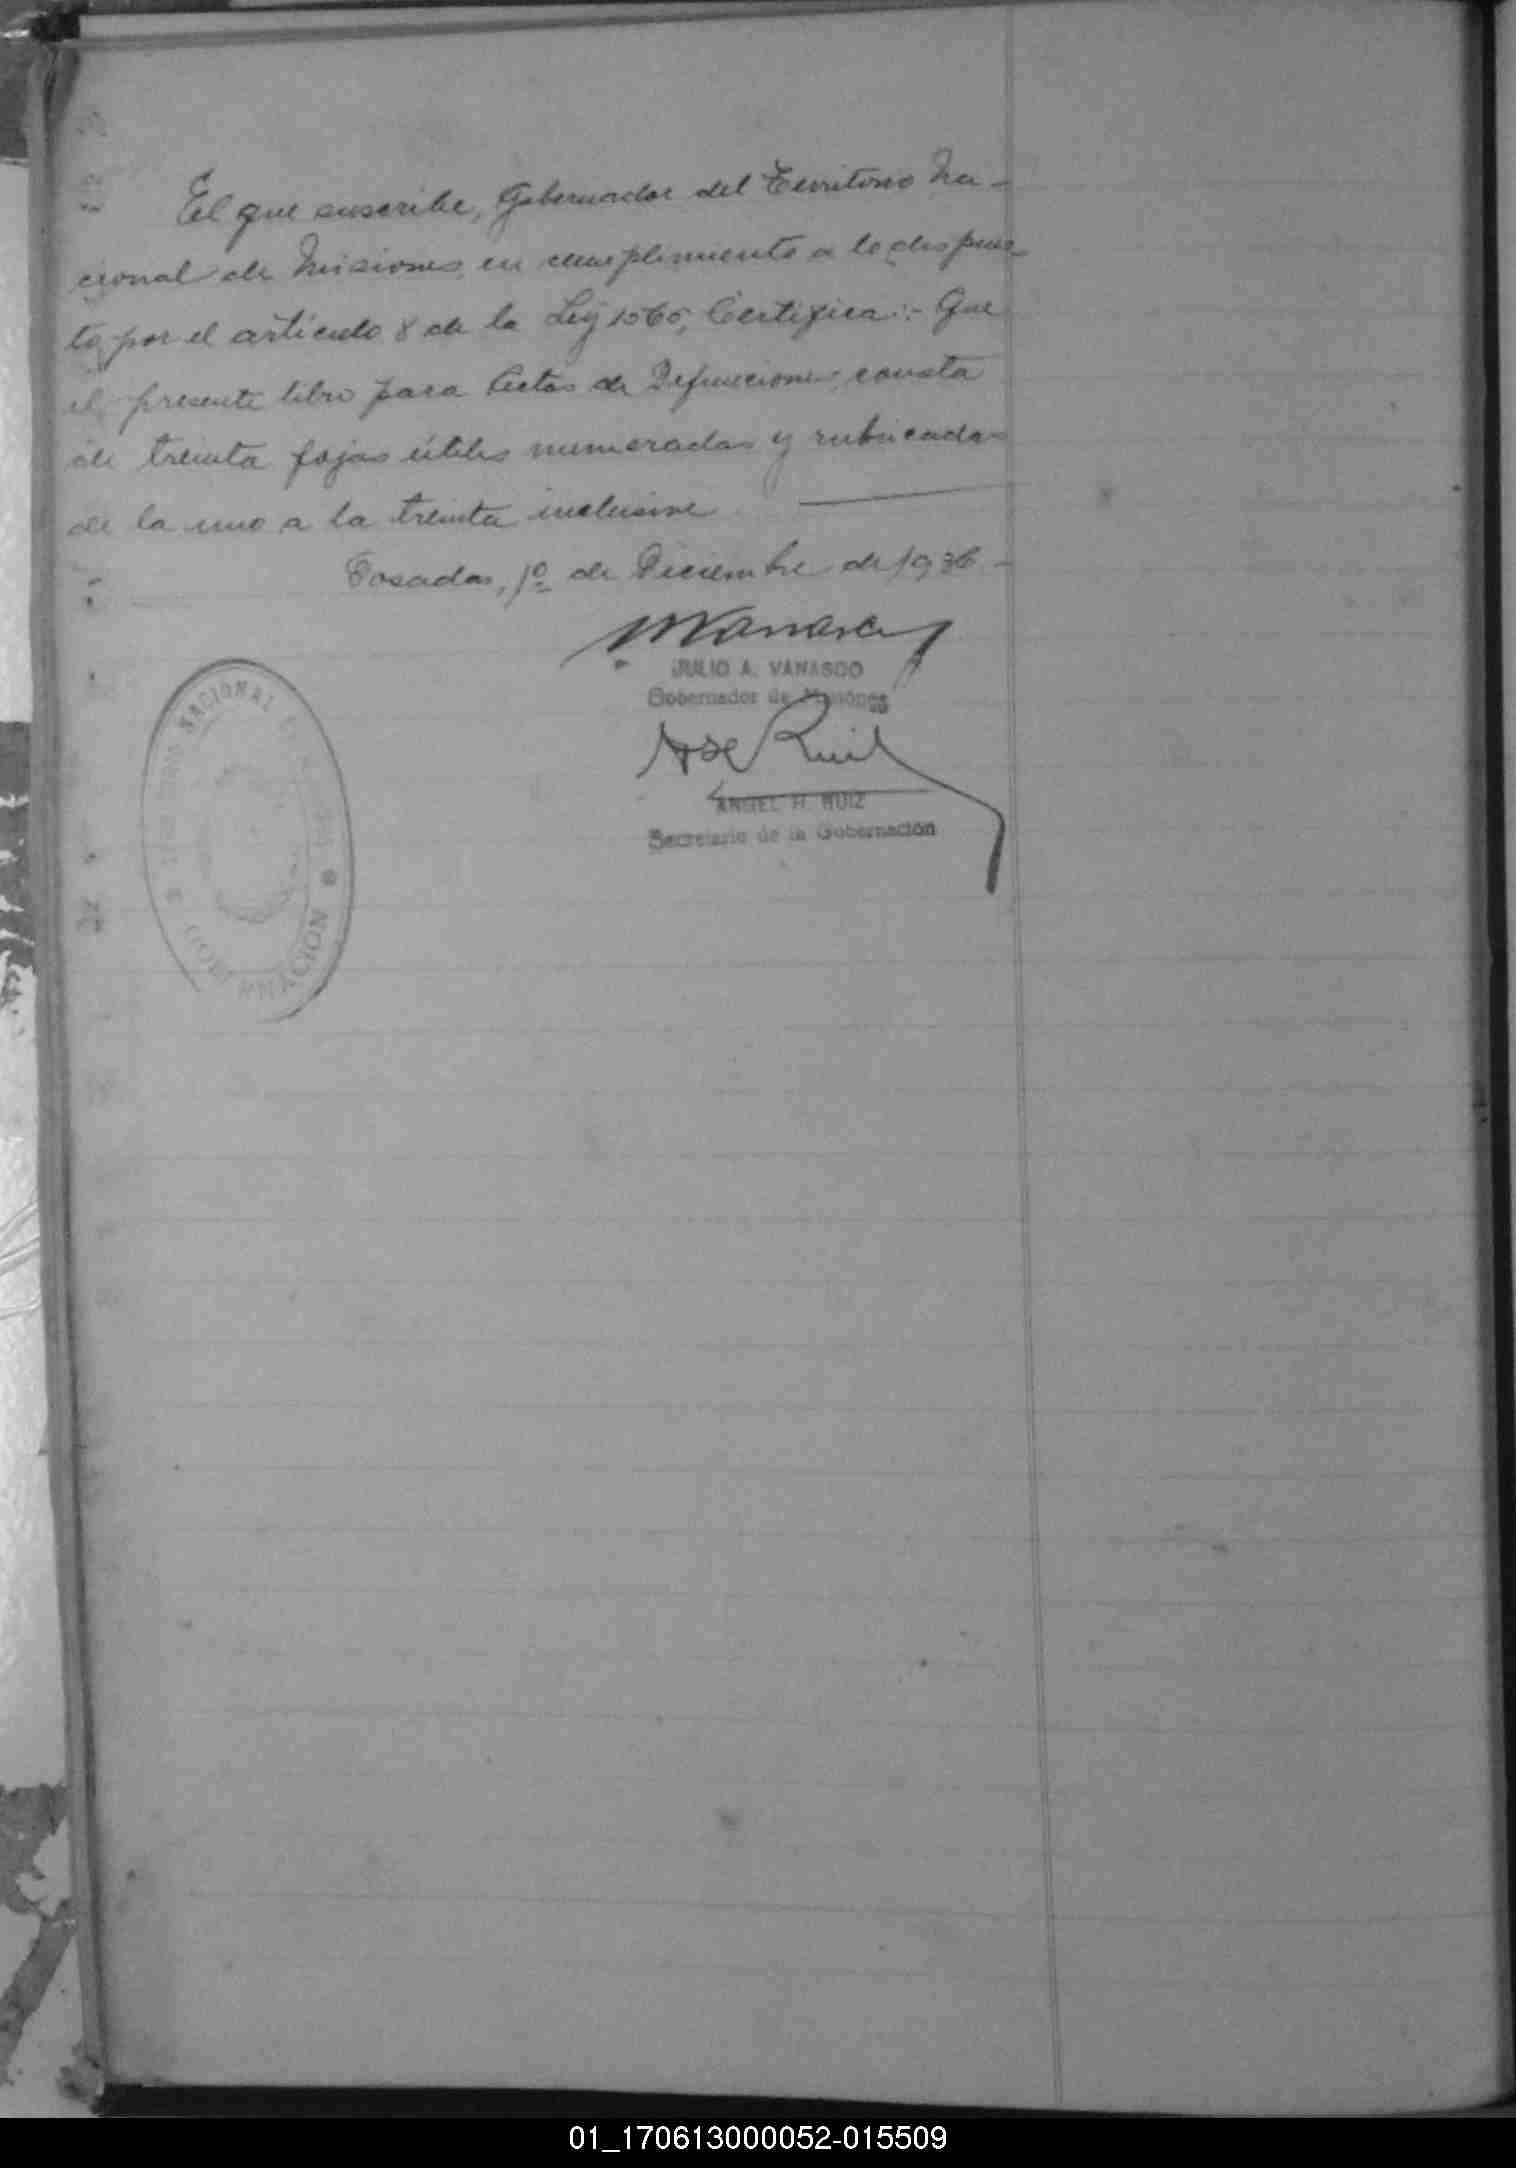 El que suscribe, Gobernador del Territorio Na-
cional de Misiones, en cumplimiento a lo dispues-
to por el artículo 8 de la Ley 1565, Certifica:- Que
el presente libro para Actas de Defunciones, consta
de treinta fojas útiles numeradas y rubricadas
de la uno a la treinta inclusive.
Posadas, 1º de Diciembre de 1936-
JULIO A. VANASCO
Gobernador de Misiones
ANGEL H. RUIZ
Secretario de la Gobernación
NACIONAL
01_170613000052-015509